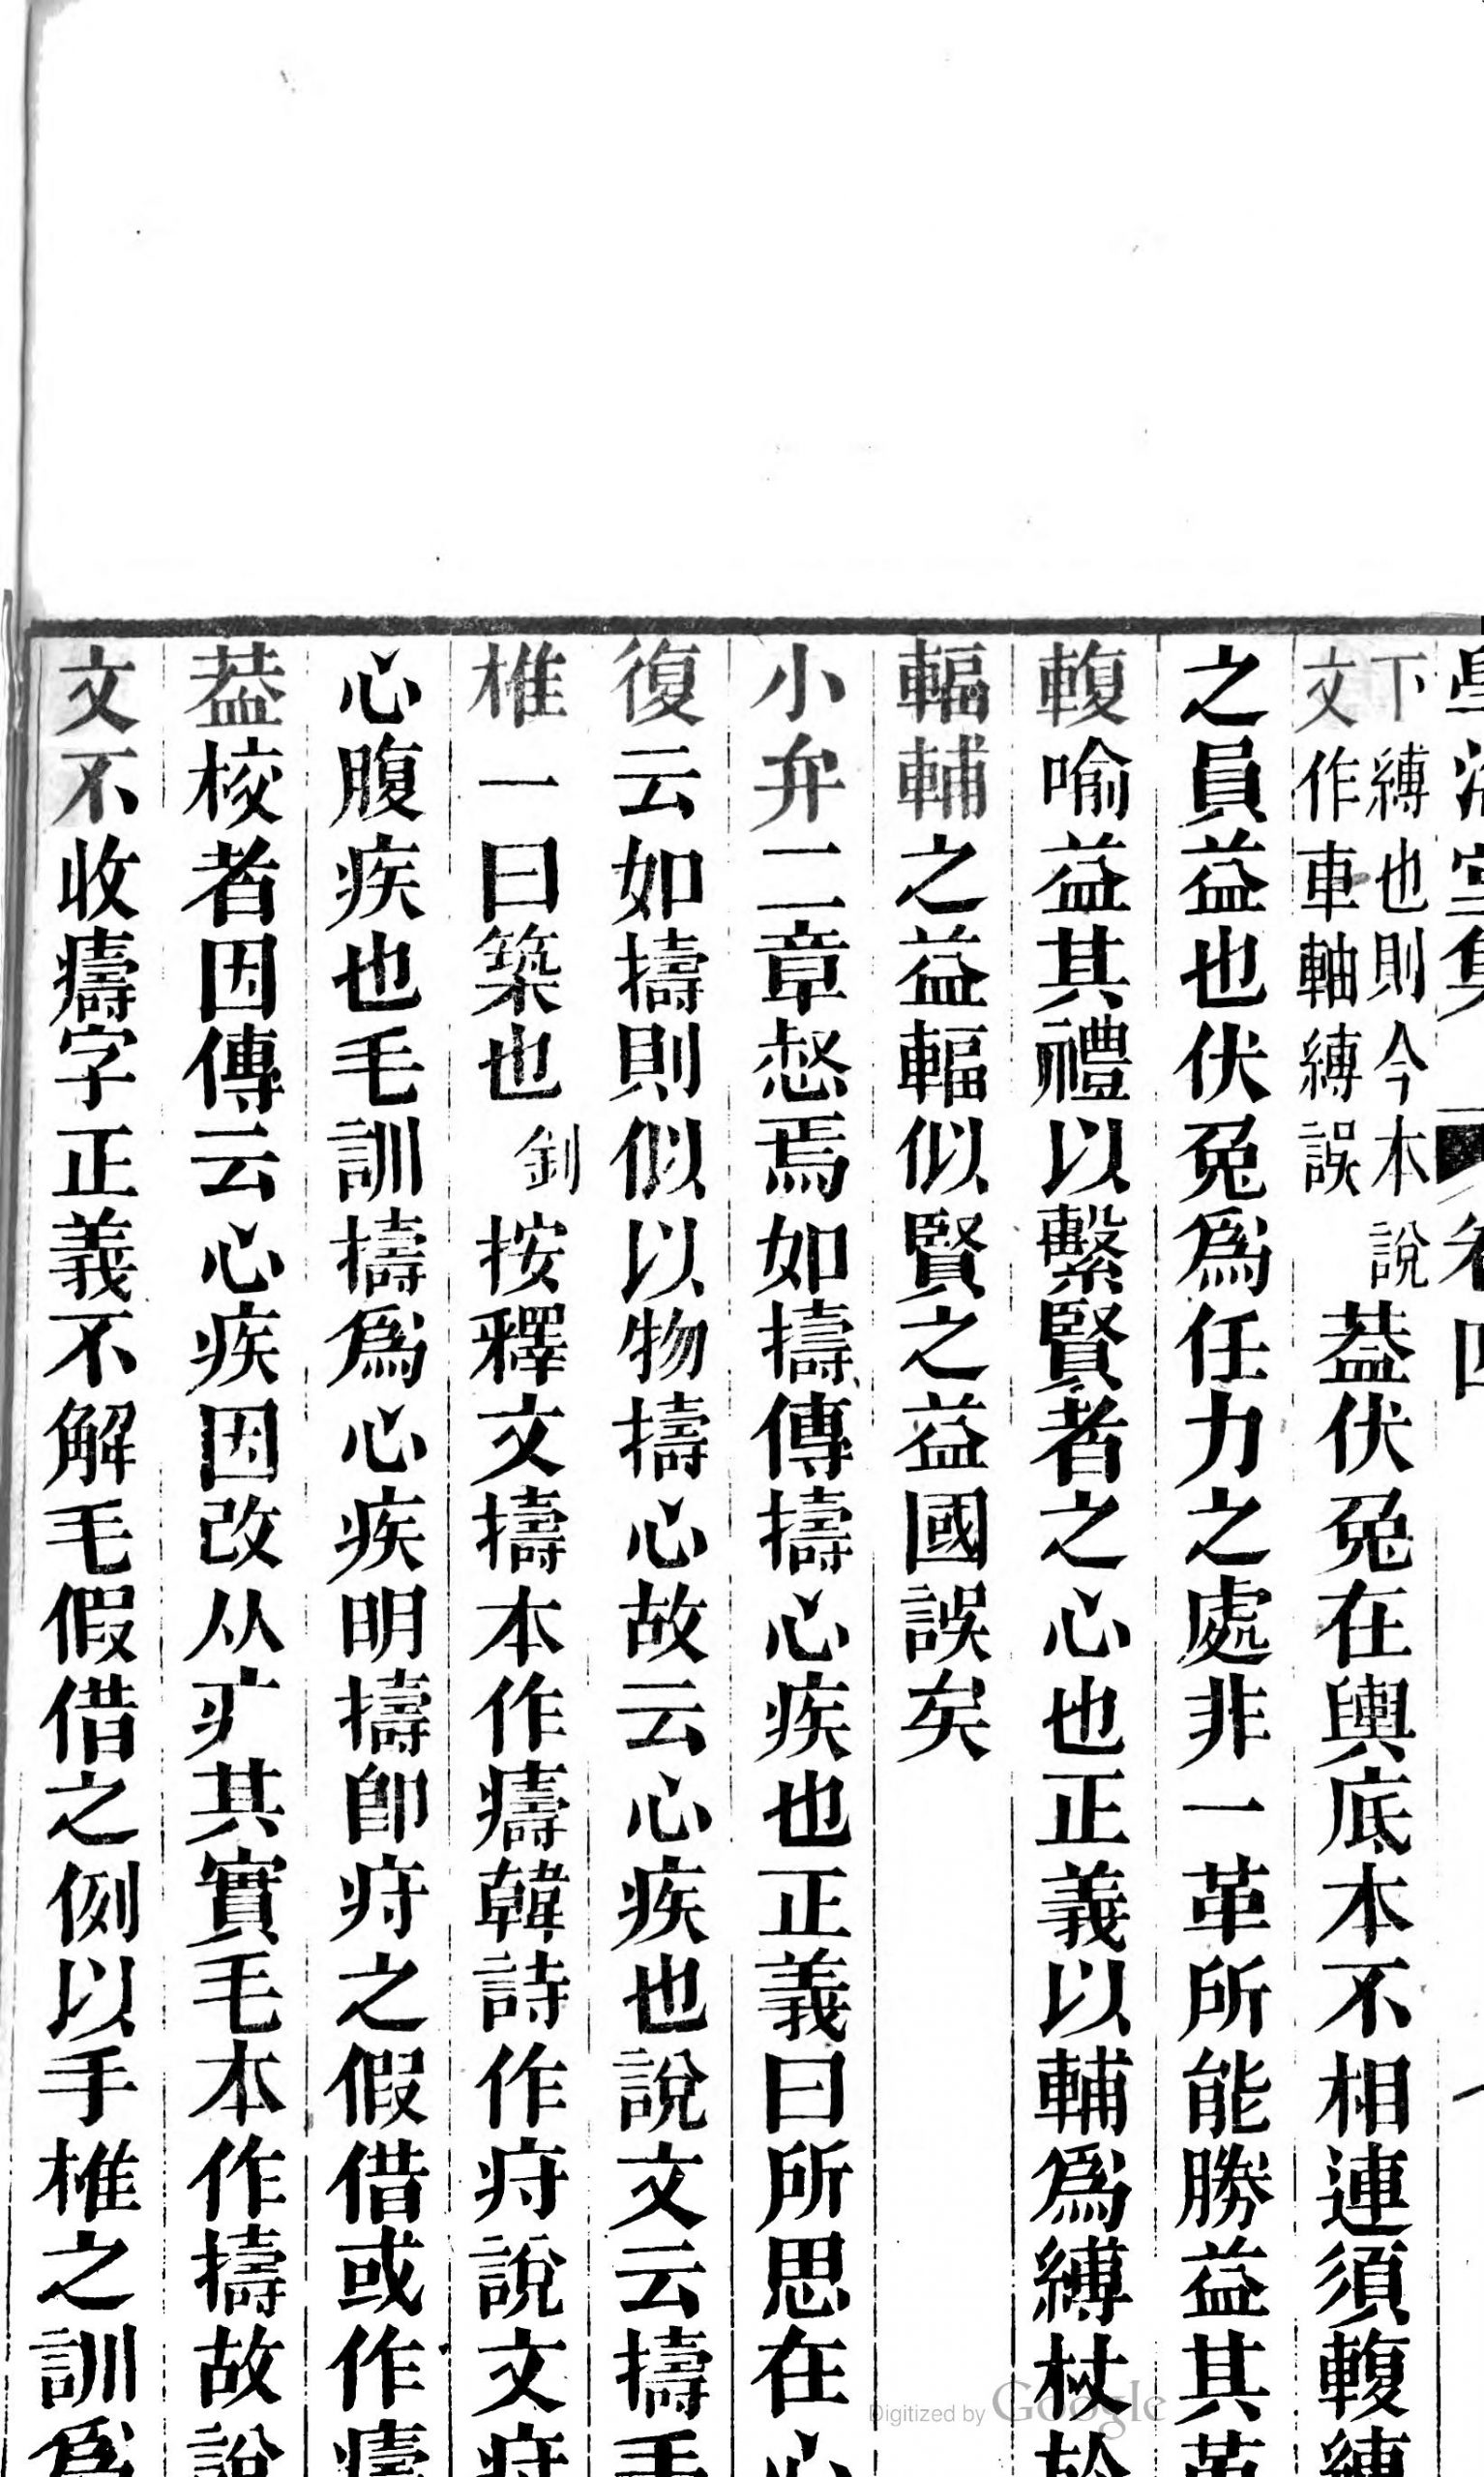 學海堂集 卷四
下縛也則今本說
文作車軸縛誤
葢伏兔在輿底本不相連須輹縛
之員益也伏兔爲任力之處非一革所能勝益其革
輹喻益其禮以繫賢者之心也正義以輔爲縛杖於
輻輔之益輻似賢之益國誤矣
小弁二章惄焉如擣傳擣心疾也正義曰所思在心
復云如擣則似以物擣心故云心疾也說文云擣手
椎一曰築也
釗
按釋文擣本作㿒韓詩作疛說文疛
心腹疾也毛訓擣爲心疾明擣卽疛之假借或作㿒
葢校者因傳云心疾因改从疒其實毛本作擣故說
文不收㿒字正義不解毛假借之例以手椎之訓爲
Digitized by Google